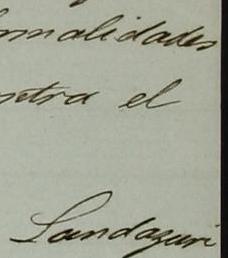 ormalidades
ntra el
Landazuri